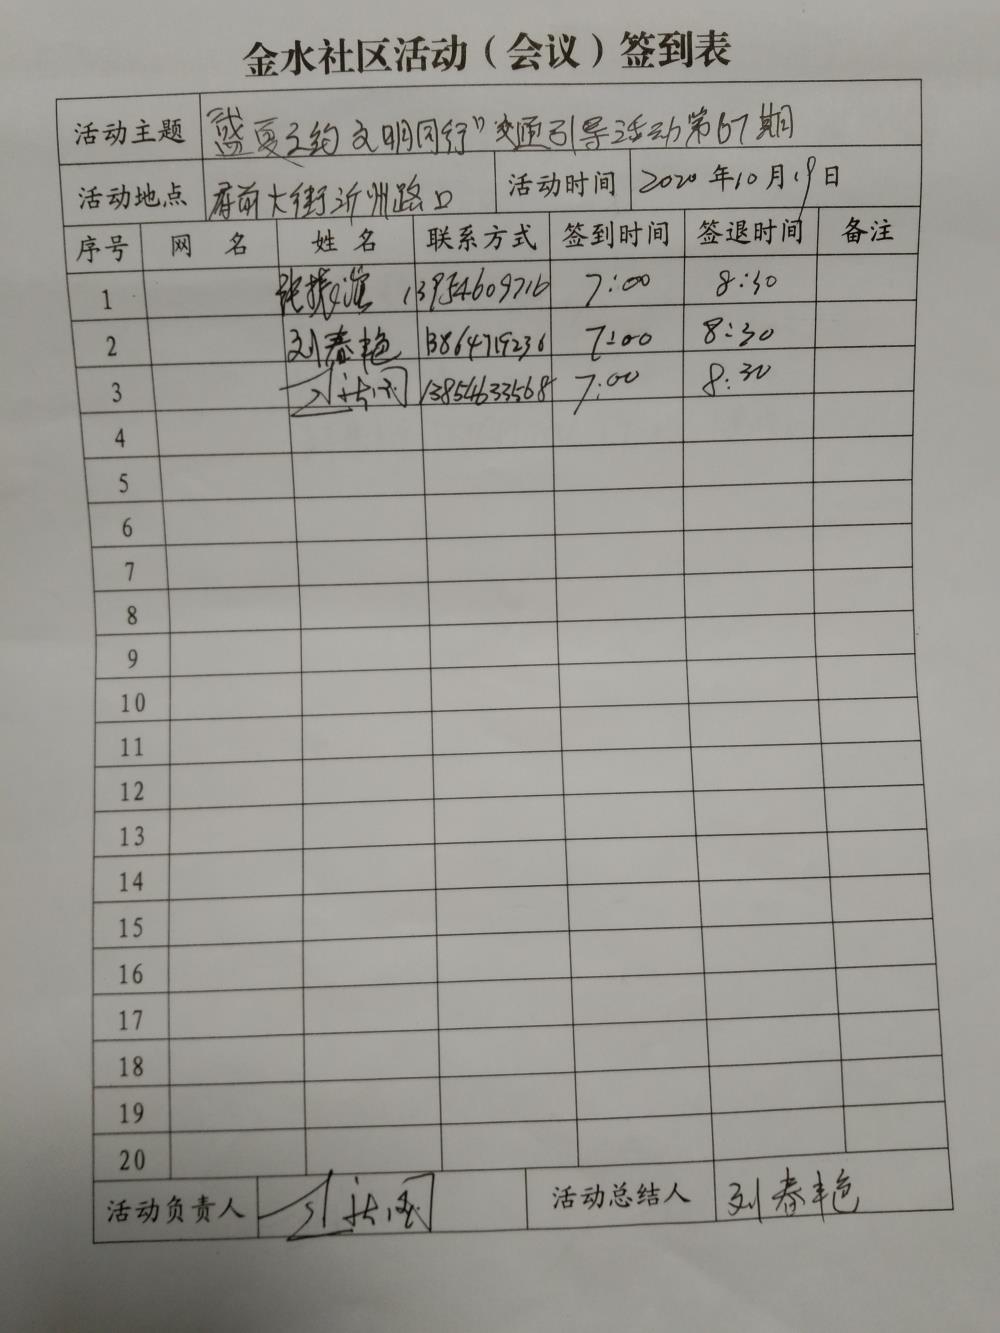 金水社区活动（会议）签到表
活动主题 “盛夏之约 文明同行”交通引导活动第67期
活动地点 府前大街沂州路口 活动时间 2020年10月19日
序号 网 名 姓 名 联系方式 签到时间 签退时间 备注
1 张振 13954609716 7:00 8:30
2 刘春艳 13864719236 7:00 8:30
3 13854633568 7:00 8:30
4
5
6
7
8
9
10
11
12
13
14
15
16
17
18
19
20
活动负责人 活动总结人 刘春艳